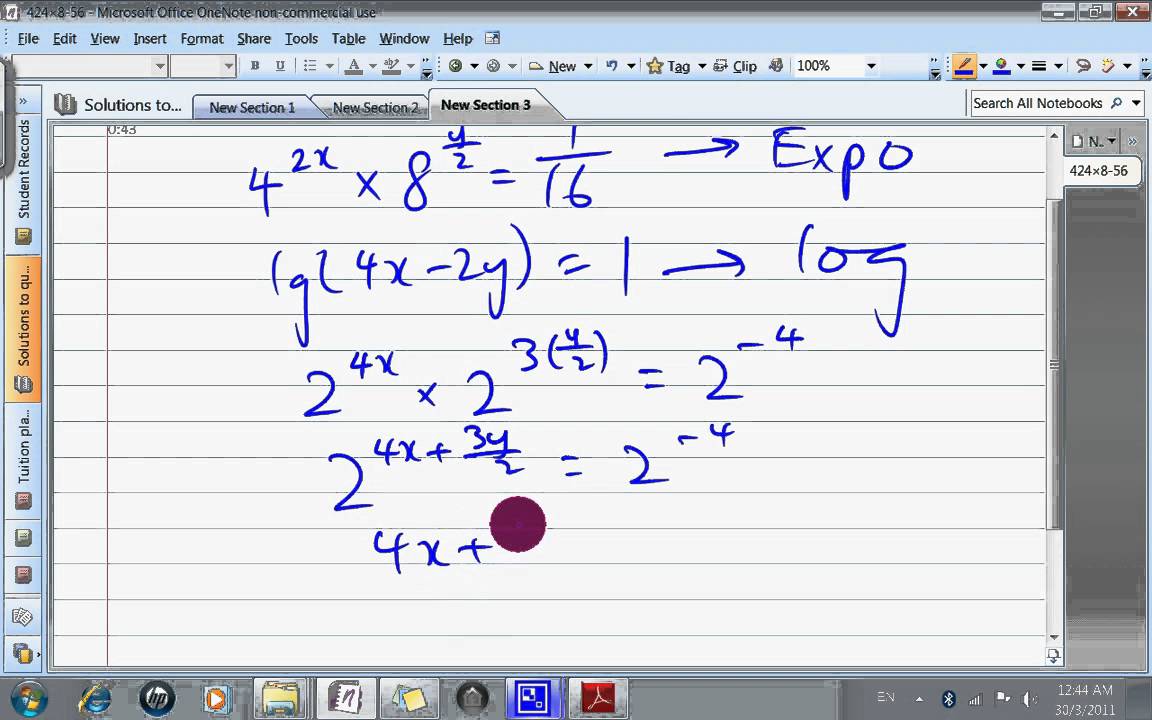 424×8-56 - Microsoft Office OneNote non-commercial use
File Edit View Insert Format Share Tools Table Window Help
B U A ab New Tag Clip 100%
Solutions to... New Section 1 New Section 2 New Section 3 Search All Notebooks
Student Records
Solutions to qu...
Tuition pla...
N..
424×8-56
0:43
4^{2x} × 8^{y/2} = 1/16 → Expo
lg(4x-2y) = 1 → log
2^{4x} × 2^{3(y/2)} = 2^{-4}
2^{4x+3y/2} = 2^{-4}
4x+
EN 12:44 AM
30/3/2011